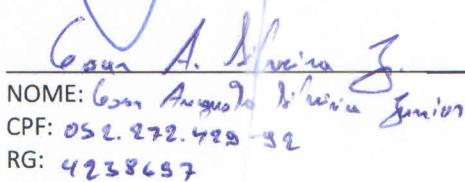 A. Silveira J.
NOME: Augusto Silveira Junior
CPF: 052.272.429-92
RG: 4238697